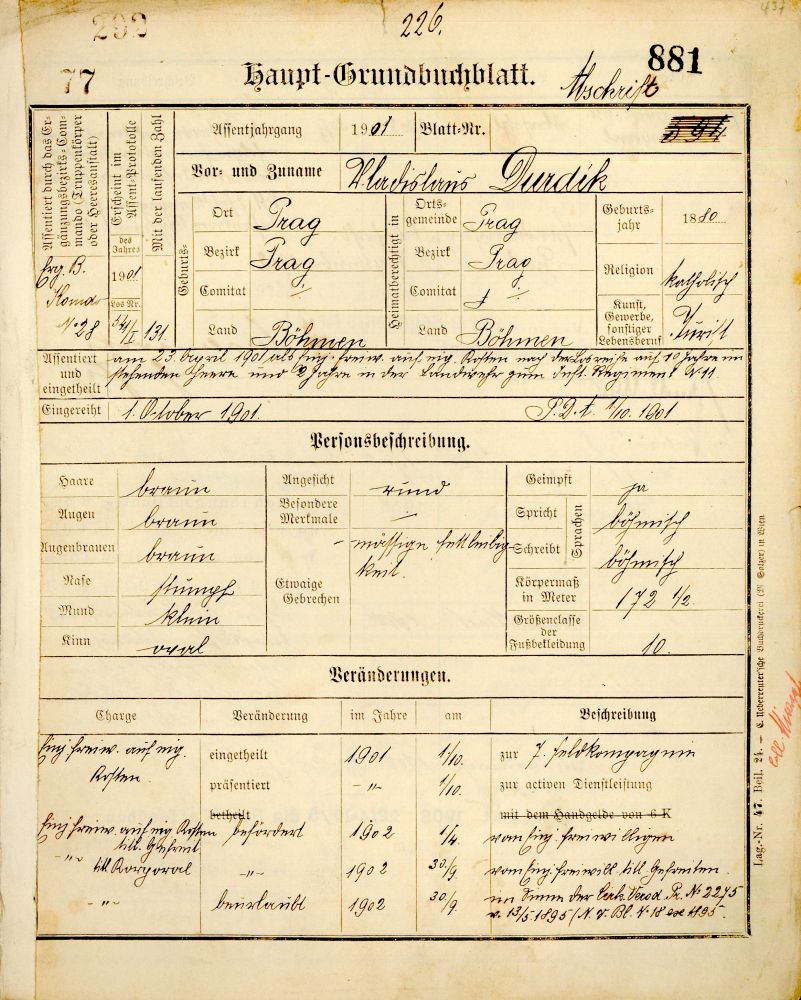 292
226.
437
77
Haupt-Grundbuchblatt.
881
Abschrift
Assentiert durch das Ergänzungsbezirks-Commando (Truppenkörper oder Heeresanstalt)
Erg. B. Komdo N. 28
Erscheint im Assent-Protokolle
des Jahres
1901
Los Nr.
Mit der laufenden Zahl
131.
Assentjahrgang 1901 Blatt-Nr. 594
Vor- und Zuname Vladislaus Durdik
Geburts-
Ort Prag
Bezirk Prag
Comitat ./.
Land Böhmen
Heimatberechtigt in
Ortsgemeinde Prag
Bezirk Prag
Comitat ./.
Land Böhmen
Geburtsjahr 1880
Religion katholisch
Kunst, Gewerbe, sonstiger Lebensberuf Jurist
Assentiert und eingetheilt
am 23. April 1901 als Einj. freiw. auf eig. Kosten nach der Losreihe auf 10 Jahre im
stehenden Heere und 2 Jahre in der Landwehr zum Inft. Regiment N 11
Eingereiht 1. Oktober 1901. P.D.t. 1/10. 1901
Personsbeschreibung.
Haare braun
Augen braun
Augenbrauen braun
Nase stumpf
Mund klein
Kinn oval
Angesicht rund
Besondere Merkmale —
Etwaige Gebrechen – mässige Fettleibigkeit.
Geimpft ja
Sprachen
Spricht böhmisch
Schreibt böhmisch
Körpermaß in Meter 172 1/2
Größenclasse der Fußbekleidung 10.
Veränderungen.
Charge Veränderung im Jahre am Beschreibung
Einj. freiw. auf eig. Kosten. eingetheilt 1901 1/10. zur 7. Feldkompagnie
präsentiert -"- 1/10. zur activen Dienstleistung
betheilt mit dem Handgelde von 6 K
Einj. freiw. auf eig Kosten titl. Gefreit. befördert 1902 1/4. vom Einj. freiwilligen
-"- titl Korporal -"- 1902 30/9. vom Einj. freiwill. titl. Gefreiten.
-"- beurlaubt 1902 30/9. im Sinne der Cirk. Verod. Pr. N 2275
v. 13/5 1895 (N. V. Bl. N 18 ex 1895.
Lag.-Nr. 47. Beil. 24. — C. Uiberreuter'sche Buchdruckerei (M. Salzer) in Wien.